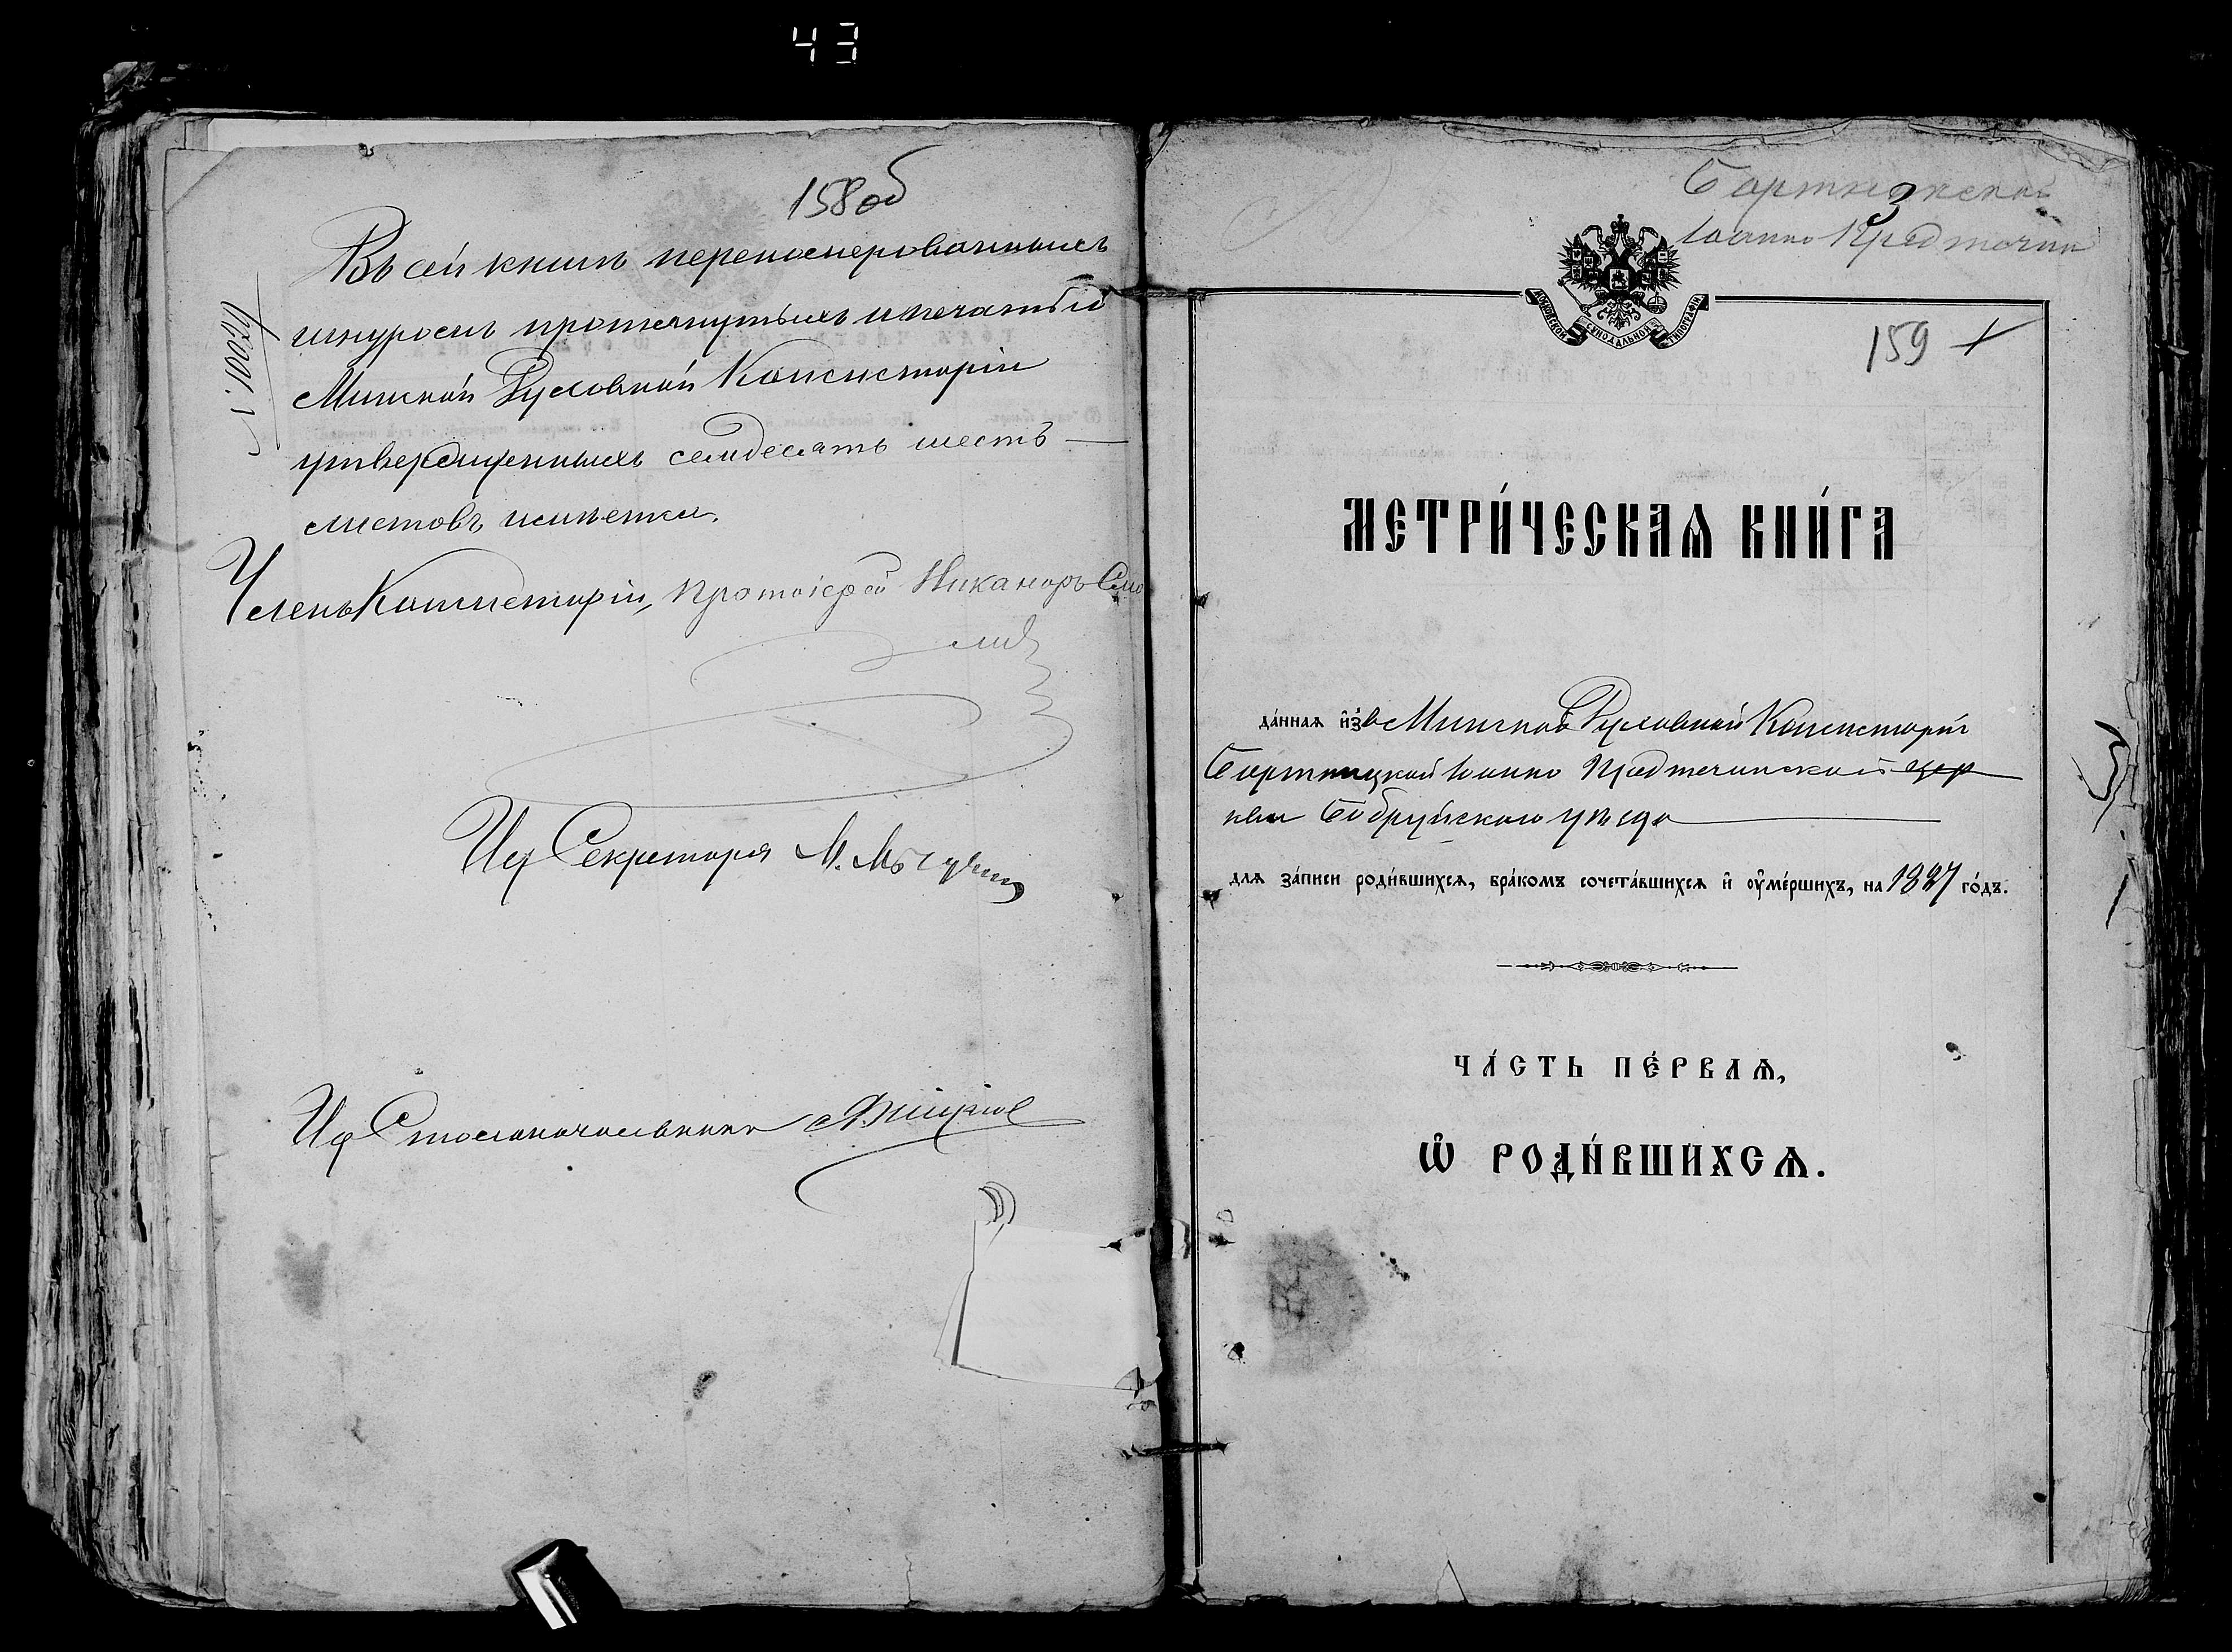 43
158об
Въ сей книгѣ перенумерованныхъ
шнуромъ протянутыхъ и печатью
Минской Духовной Консисторіи
утвержденныхъ семдесять шесть
листовъ
Членъ Консисторіи, Протоіерей Никаноръ
Иф Секретаря М.
Иф Столоначальника
Іоанно Предтечи
МОСКОВСКОЙ СѴНОДАЛЬНОЙ ТИПОГРАФІИ
159
МЕТРИ́ЧЕСКАѦ КНИ́ГА
да́ннаѧ и҆зъ Минской Духовной Консисторіи
Бортницкой Іоанно Предтечинской цер
кви Бобруйскаго уѣзда
длѧ за́писи роди́вшихсѧ, бра́комъ сочета́вшихсѧ и҆ оу҆ме́ршихъ, на 1887 го́дъ.
ЧА́СТЬ ПЕ́РВАѦ,
Ѡ҆ РОДИ́ВШИХСѦ.